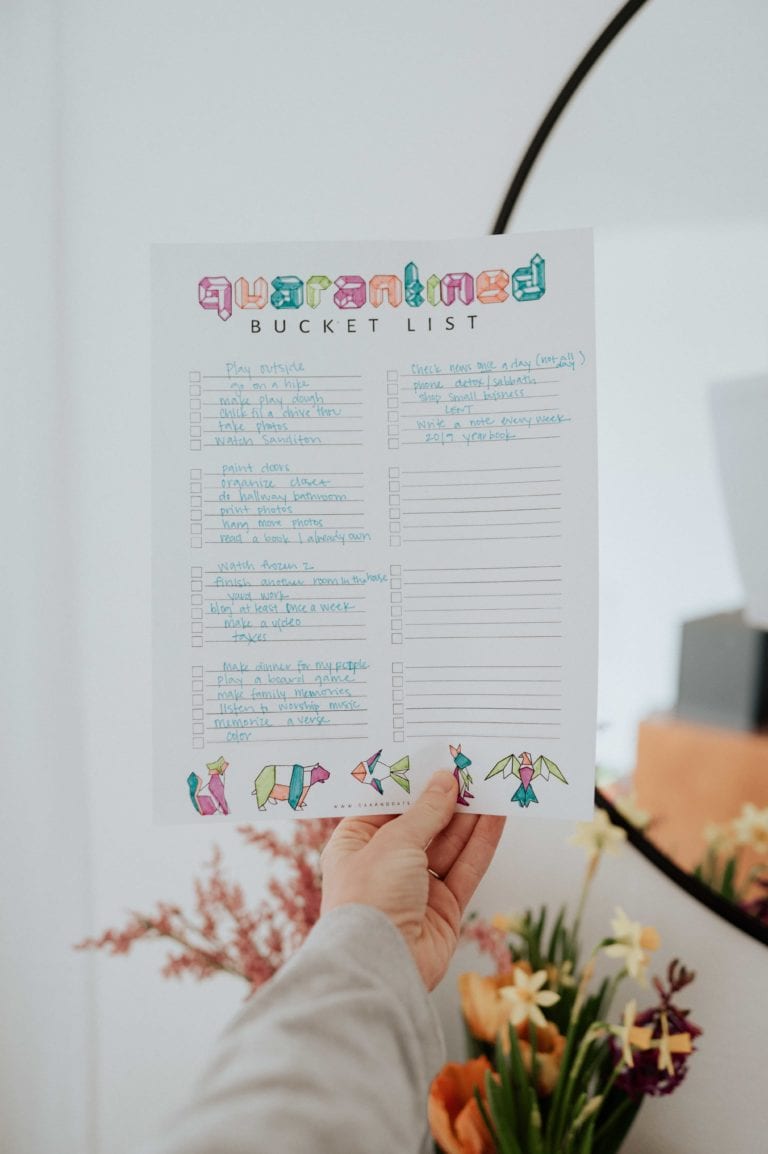 quarantined
BUCKET LIST
play outside
go on a hike
make play dough
chick fil a drive thru
take photos
watch Sanditon
paint doors
organize closet
do hallway bathroom
print photos
hang more photos
read a book I already own
watch frozen 2
finish another room in the house
yard work
blog at least once a week
make a video
taxes
make dinner for my people
play a board game
make family memories
listen to worship music
memorize a verse
color
check news once a day (not all day)
phone detox/sabbath
shop small business
LENT
write a note every week
2019 yearbook
WWW.